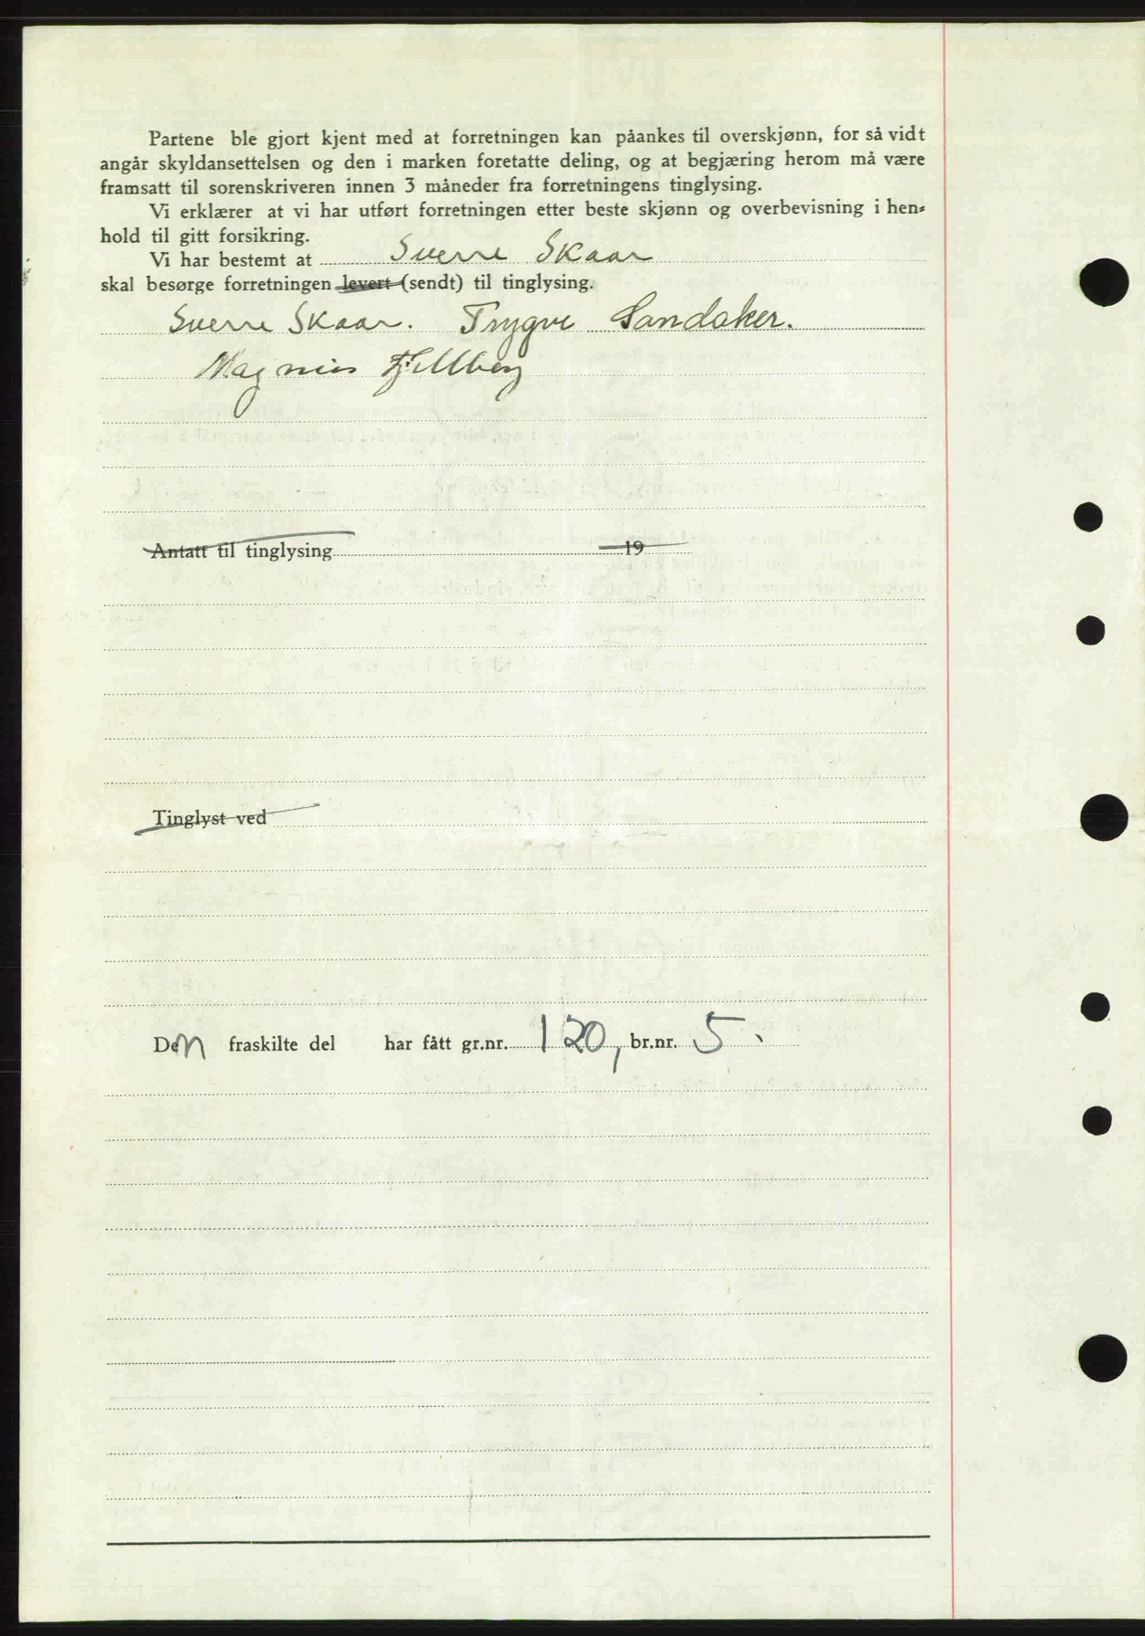 Partene ble gjort kjent med at forretningen kan påankes til overskjønn, for så vidt
angår skyldansettelsen og den i marken foretatte deling, og at begjæring herom må være
framsatt til sorenskriveren innen 3 måneder fra forretningens tinglysing.
Vi erklærer at vi har utført forretningen etter beste skjønn og overbevisning i hen-
hold til gitt forsikring.
Vi har bestemt at Sverre Skaar
skal besørge forretningen levert (sendt) til tinglysing.
Sverre Skaar. Trygve Sandaker.
Magnus Fjellberg
Antatt til tinglysing 19
Tinglyst ved
Den fraskilte del har fått gr.nr. 120, br.nr. 5.